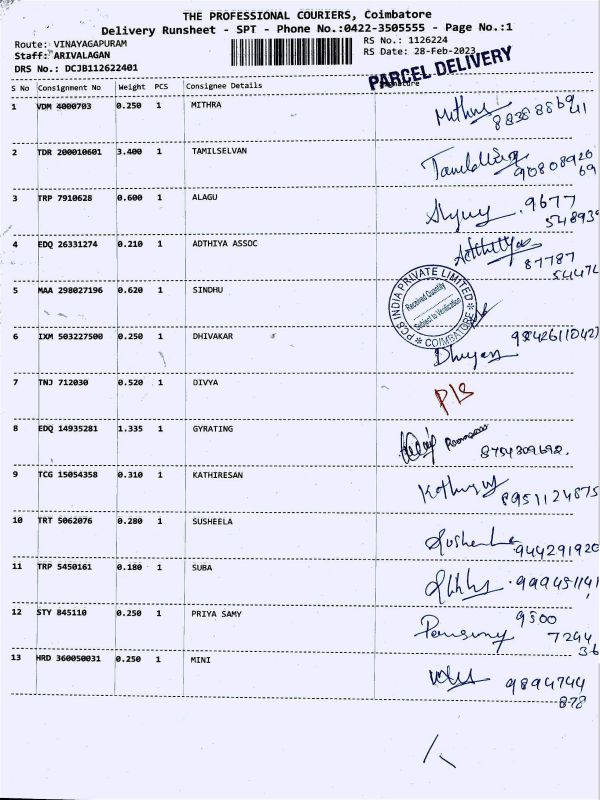 THE PROFESSIONAL COURIERS, Coimbatore
Delivery Runsheet - SPT - Phone No.:0422-3505555 - Page No.:1
Route: VINAYAGAPURAM RS No.: 1126224
Staff: ARIVALAGAN RS Date: 28-Feb-2023
DRS No.: DCJB112622401
PARCEL DELIVERY
S No Consignment No Weight PCS Consignee Details
1 VDM 4000703 0.250 1 MITHRA
2 TDR 200010601 3.400 1 TAMILSELVAN
3 TRP 7910628 0.600 1 ALAGU 9677
4 EDQ 26331274 0.210 1 ADTHIYA ASSOC
87787
5 MAA 298027196 0.620 1 SINDHU
PCS INDIA PRIVATE LIMITED
Received Quantity
Subject to Verification
COIMBATORE
6 IXM 503227500 0.250 1 DHIVAKAR
7 TNJ 712030 0.520 1 DIVYA
8 EDQ 14935281 1.335 1 GYRATING
8754309692.
9 TCG 15054358 0.310 1 KATHIRESAN
8951124875
10 TRT 5062076 0.280 1 SUSHEELA
944291920
11 TRP 5450161 0.180 1 SUBA
12 STY 845110 0.250 1 PRIYA SAMY 9500
7294
36
13 HRD 360050031 0.250 1 MINI
9894744
878